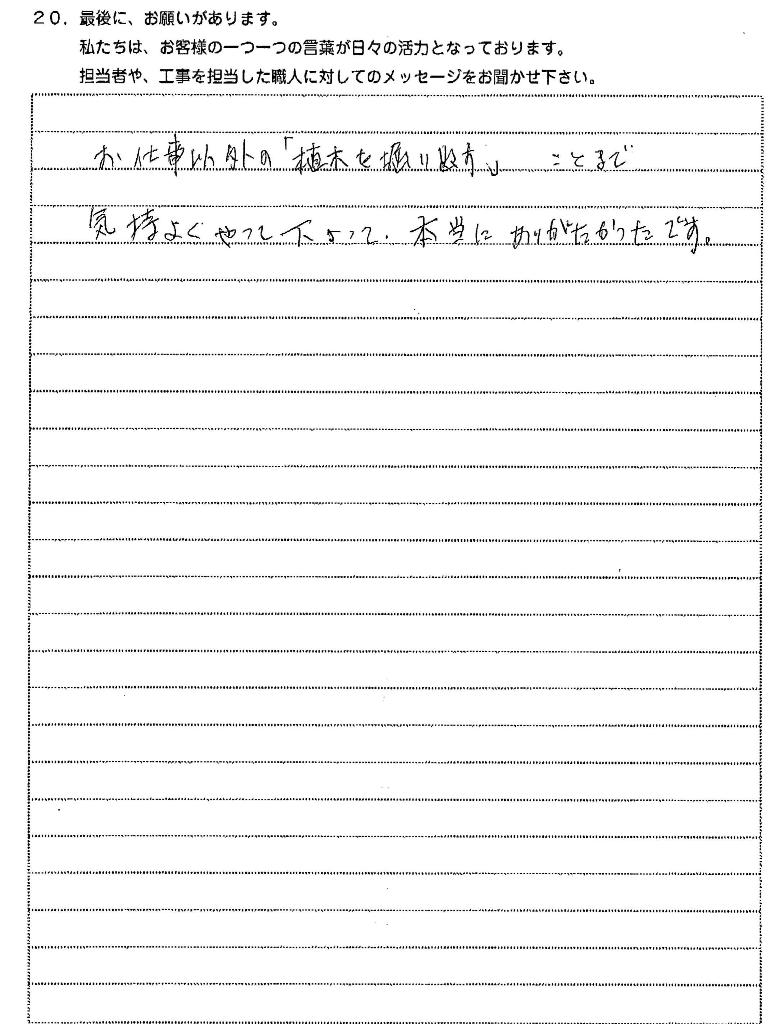 20．最後に、お願いがあります。
私たちは、お客様の一つ一つの言葉が日々の活力となっております。
担当者や、工事を担当した職人に対してのメッセージをお聞かせ下さい。
お仕事以外の「植木を掘り起す」 ことまで
気持よくやって下さって、本当にありがたかったです。